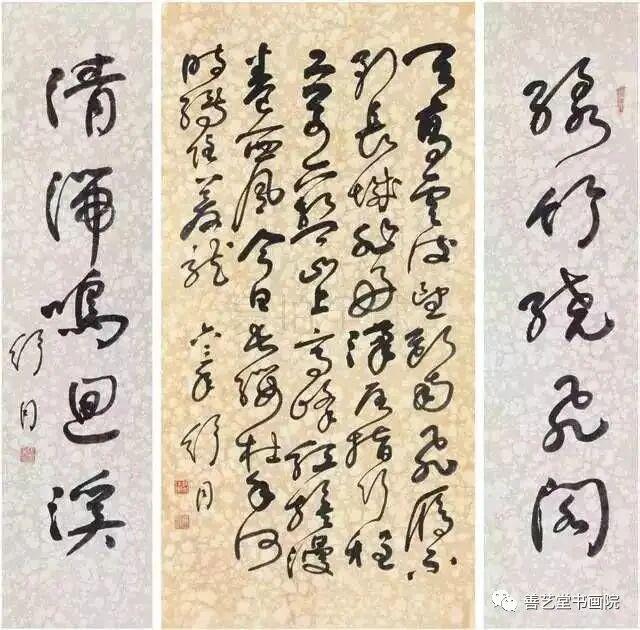 绿竹绕飞阁
天高雲淡望断南飞雁不
到长城非好漢屈指行程
二万六盘山上高峰红旗漫
卷西风今日长缨在手何
时缚住苍龙 六三年 舒同
清湍鸣回溪
舒同
善艺堂书画院